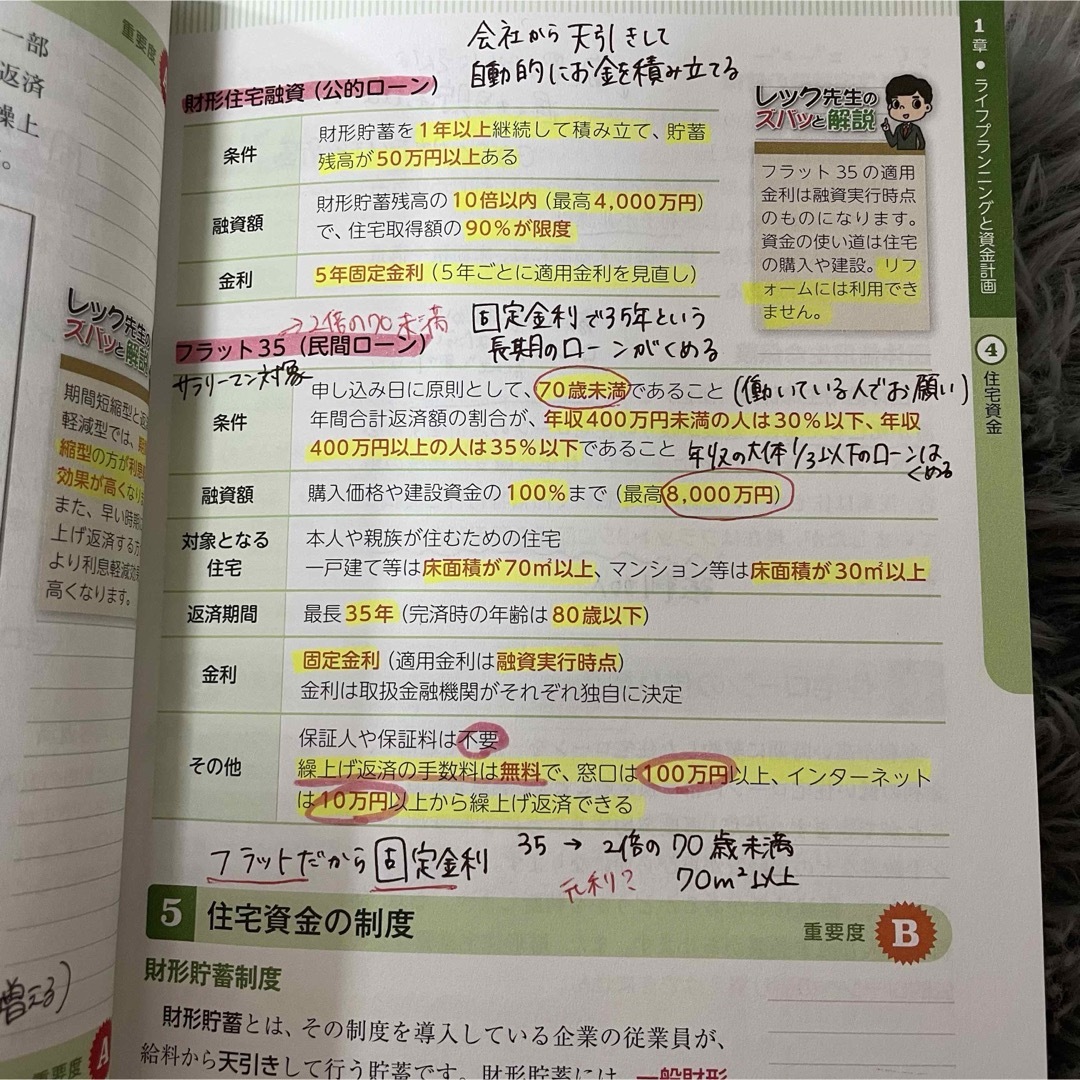 一部
返済
繰上
。
重要度
会社から天引きして
自動的にお金を積み立てる
財形住宅融資(公的ローン)
条件
財形貯蓄を1年以上継続して積み立て、貯蓄
残高が50万円以上ある
融資額
財形貯蓄残高の10倍以内(最高4,000万円)
で、住宅取得額の90%が限度
金利
5年固定金利(5年ごとに適用金利を見直し)
レック先生の
ズバッと解説
フラット35の適用
金利は融資実行時点
のものになります。
資金の使い道は住宅
の購入や建設。リフ
ォームには利用でき
ません。
1章●ライフプランニングと資金計画
④住宅資金
→2倍の70未満
固定金利で35年という
長期のローンがくめる
フラット35(民間ローン)
サラリーマン対象
条件
申し込み日に原則として、70歳未満であること(働いている人でお願い)
年間合計返済額の割合が、年収400万円未満の人は30%以下、年収
400万円以上の人は35%以下であること
年収の大体1/3以下のローンは
くめる
融資額
購入価格や建設資金の100%まで(最高8,000万円)
対象となる
住宅
本人や親族が住むための住宅
一戸建て等は床面積が70㎡以上、マンション等は床面積が30㎡以上
返済期間
最長35年(完済時の年齢は80歳以下)
金利
固定金利(適用金利は融資実行時点)
金利は取扱金融機関がそれぞれ独自に決定
その他
保証人や保証料は不要
繰上げ返済の手数料は無料で、窓口は100万円以上、インターネット
は10万円以上から繰上げ返済できる
フラットだから固定金利
35→2倍の70歳未満
元利?
70m²以上
5 住宅資金の制度
重要度 B
財形貯蓄制度
財形貯蓄とは、その制度を導入している企業の従業員が、
給料から天引きして行う貯蓄です。財形貯蓄には、一般財形
レック先生の
ズバッと解説
期間短縮型と返
軽減型では、期
縮型の方が利息
効果が高くなり
また、早い時期
上げ返済する方
より利息軽減効果
高くなります。
増える)
重要度 A